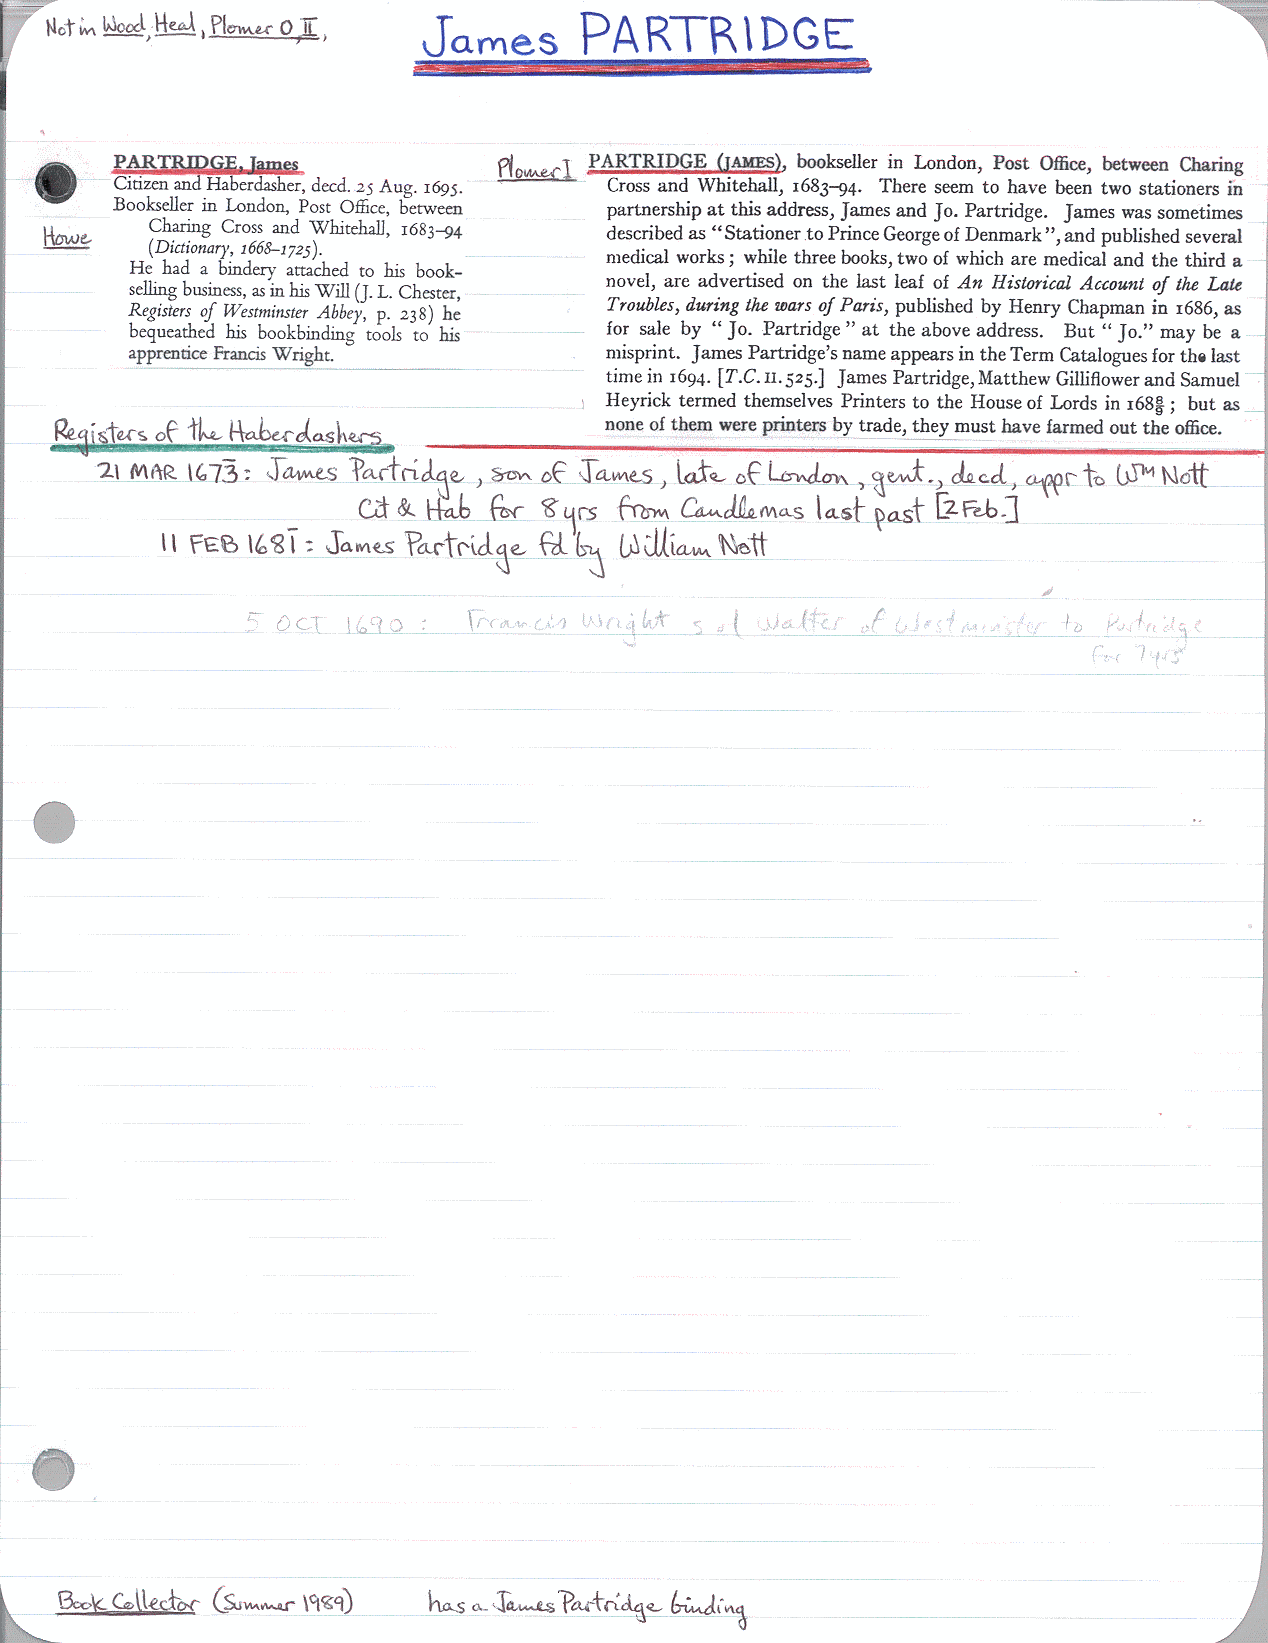 Not in Wood, Heal, Plomer O, II,
James PARTRIDGE
PARTRIDGE, James
Citizen and Haberdasher, decd. 25 Aug. 1695.
Bookseller in London, Post Office, between
Charing Cross and Whitehall, 1683–94
(Dictionary, 1668–1725).
He had a bindery attached to his book-
selling business, as in his Will (J. L. Chester,
Registers of Westminster Abbey, p. 238) he
bequeathed his bookbinding tools to his
apprentice Francis Wright.
Howe
Plomer I
PARTRIDGE (JAMES), bookseller in London, Post Office, between Charing
Cross and Whitehall, 1683–94. There seem to have been two stationers in
partnership at this address, James and Jo. Partridge. James was sometimes
described as “Stationer to Prince George of Denmark”, and published several
medical works; while three books, two of which are medical and the third a
novel, are advertised on the last leaf of An Historical Account of the Late
Troubles, during the wars of Paris, published by Henry Chapman in 1686, as
for sale by “ Jo. Partridge ” at the above address. But “ Jo.” may be a
misprint. James Partridge’s name appears in the Term Catalogues for the last
time in 1694. [T.C. II. 525.] James Partridge, Matthew Gilliflower and Samuel
Heyrick termed themselves Printers to the House of Lords in 168 8/9; but as
none of them were printers by trade, they must have farmed out the office.
Registers of the Haberdashers
21 MAR 1673: James Partridge, son of James, late of London, gent., decd, appr to Wm Nott
Cit & Hab for 8 yrs from Candlemas last past [2 Feb.]
11 FEB 1681: James Partridge fd by William Nott
5 OCT 1690: Francis Wright s of Walter of Westminister to Partridge
for 7 yrs
Book Collector (Summer 1989) has a James Partridge binding